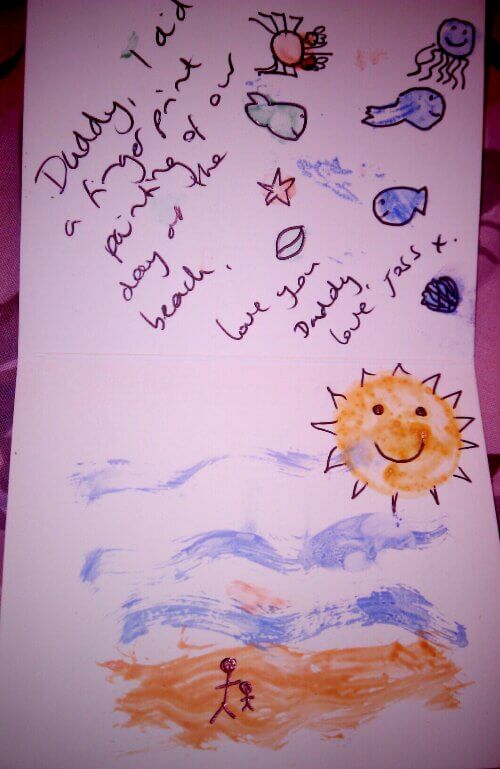 Daddy, I did
a finger print
painting of our
day at the
beach.
love you
Daddy,
love Jess x.